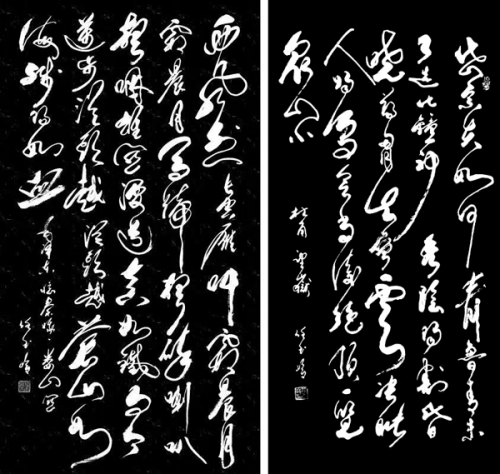 岱宗夫如何齐鲁青未
了造化钟神秀阴阳割昏
晓荡胸生层云决眦
入归鸟会当凌绝顶一览
众山小
杜甫望岳
西风烈长空雁叫霜晨月
霜晨月马蹄声碎喇叭
声咽雄关漫道真如铁而今
迈步从头越从头越苍山如
海残阳如血
毛泽东忆秦娥·娄山关